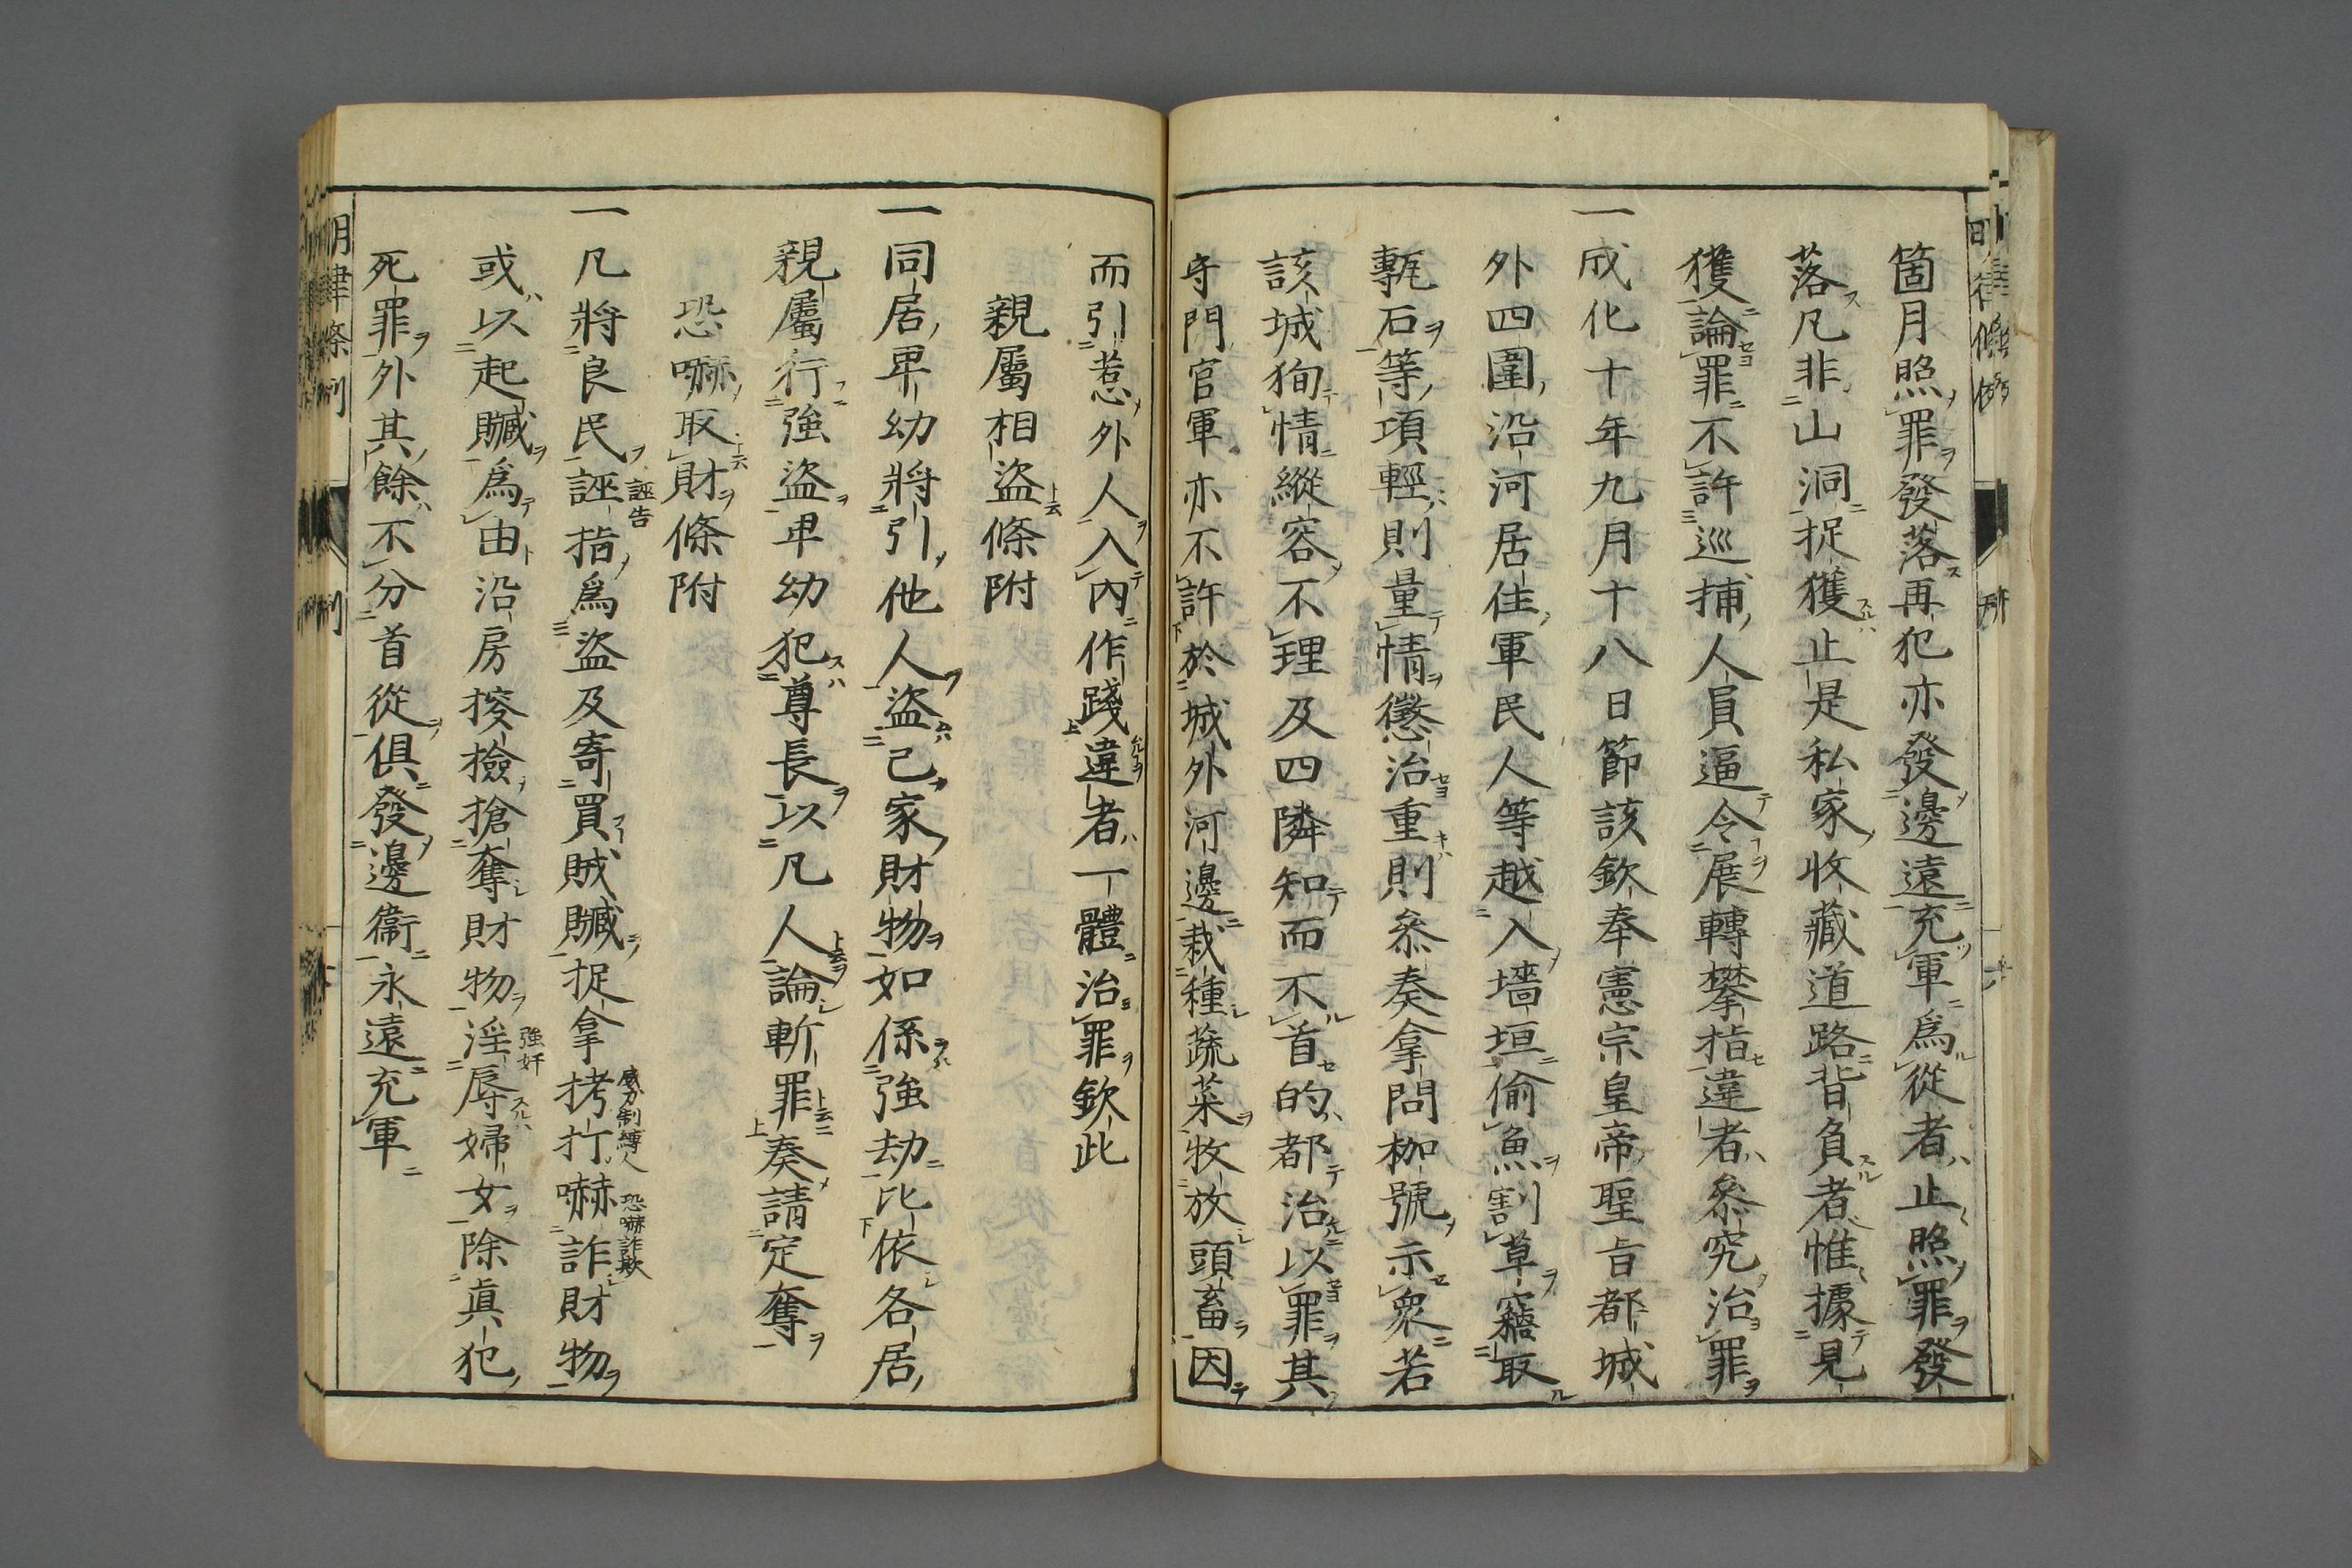 箇月照罪發落再犯亦發邊遠充軍爲從者止照罪發
落凡非山洞捉獲止是私家收藏道路背負者惟據見
獲論罪不許巡捕人員逼令展轉攀指違者叅究治罪
一成化十年九月十八日節該欽奉憲宗皇帝聖旨都城
外四圍沿河居住軍民人等越入墻垣偷魚割草竊取
甎石等項輕則量情懲治重則叅奏拿問枷號示衆若
該城狥情縱容不理及四隣知而不首的都治以罪其
守門官軍亦不許於城外河邊栽種蔬菜牧放頭畜因
而引惹外人入內作踐違者一體治罪欽此
親屬相盜條附
一同居卑幼將引他人盜己家財物如係強劫比依各居
親屬行強盜卑幼犯尊長以凡人論斬罪奏請定奪
恐嚇取財條附
一凡將良民誣指爲盜及寄買贓贓捉拿拷打嚇詐財物
誣告
威力制縛人
恐嚇詐欺
或以起贓爲由沿房搜檢搶奪財物淫辱婦女除眞犯
強奸
死罪外其餘不分首從俱發邊衞永遠充軍
明律條例
刑